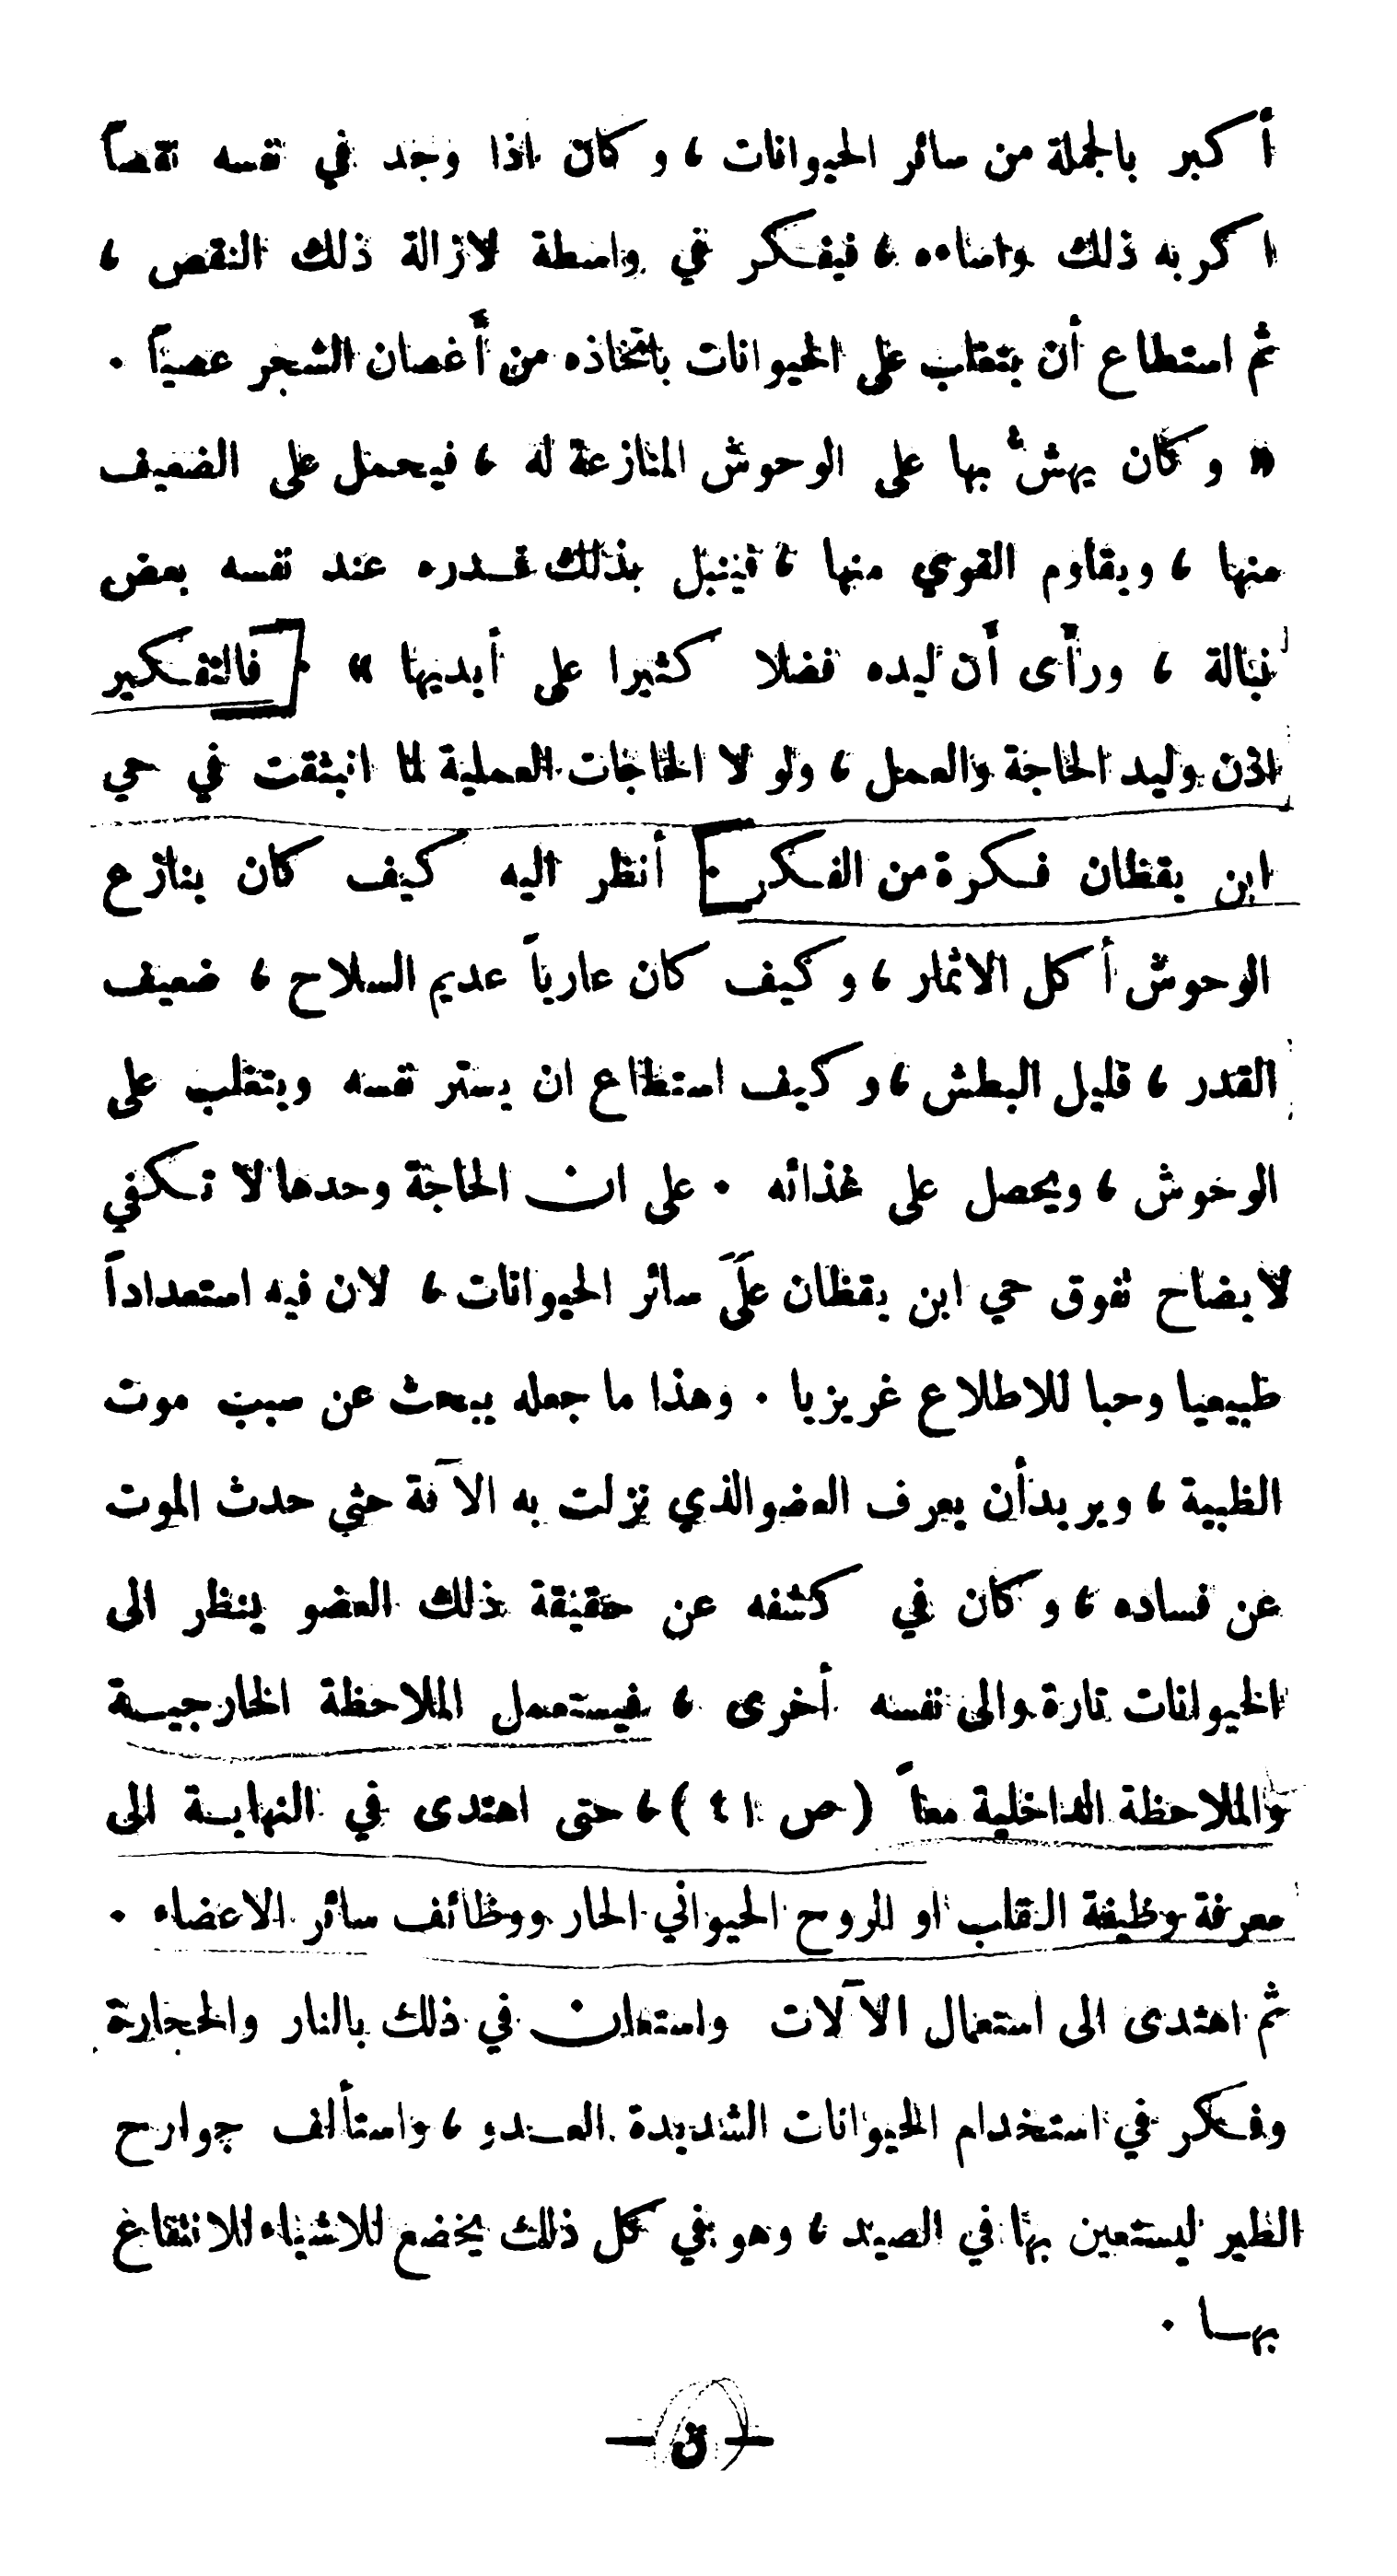 أكبر بالجملة من سائر الحيوانات ، وكان اذا وجد في نفسه نقصاً
اكربه ذلك واساءه ، فيفكر في واسطة لازالة ذلك النقص ،
ثم استطاع أن يتغلب على الحيوانات باتخاذه من أغصان الشجر عصياً .
« وكان يهش بها على الوحوش المنازعة له ، فيحمل على الضعيف
منها ، ويقاوم القوي منها ، فينبل بذلك قدره عند نفسه بعض
نبالة ، ورأى أن ليده فضلا كثيرا على أيديها » . [ فالتفكير
اذن وليد الحاجة والعمل ، ولو لا الحاجات العملية لما انبثقت في حي
ابن يقظان فكرة من الفكر . ] أنظر اليه كيف كان ينازع
الوحوش أكل الاثمار ، وكيف كان عارياً عديم السلاح ، ضعيف
القدر ، قليل البطش ، وكيف استطاع ان يستر نفسه ويتغلب على
الوحوش ، ويحصل على غذائه . على ان الحاجة وحدها لا تكفي
لايضاح تفوق حي ابن يقظان على سائر الحيوانات ، لان فيه استعداداً
طبيعيا وحبا للاطلاع غريزيا . وهذا ما جعله يبحث عن سبب موت
الظبية ، ويريد أن يعرف العضو الذي نزلت به الآفة حتى حدث الموت
عن فساده ، وكان في كشفه عن حقيقة ذلك العضو ينظر الى
الحيوانات تارة والى نفسه أخرى ، فيستعمل الملاحظة الخارجية
والملاحظة الداخلية معاً ( ص ٤١ ) ، حتى اهتدى في النهاية الى
معرفة وظيفة القلب او الروح الحيواني الحار ووظائف سائر الاعضاء .
ثم اهتدى الى استعمال الآلات واستعان في ذلك بالنار والحجارة
وفكر في استخدام الحيوانات الشديدة العدو ، واستألف جوارح
الطير ليستعين بها في الصيد ، وهو في كل ذلك يخضع للاشياء للانتفاع
بها .
— ن —